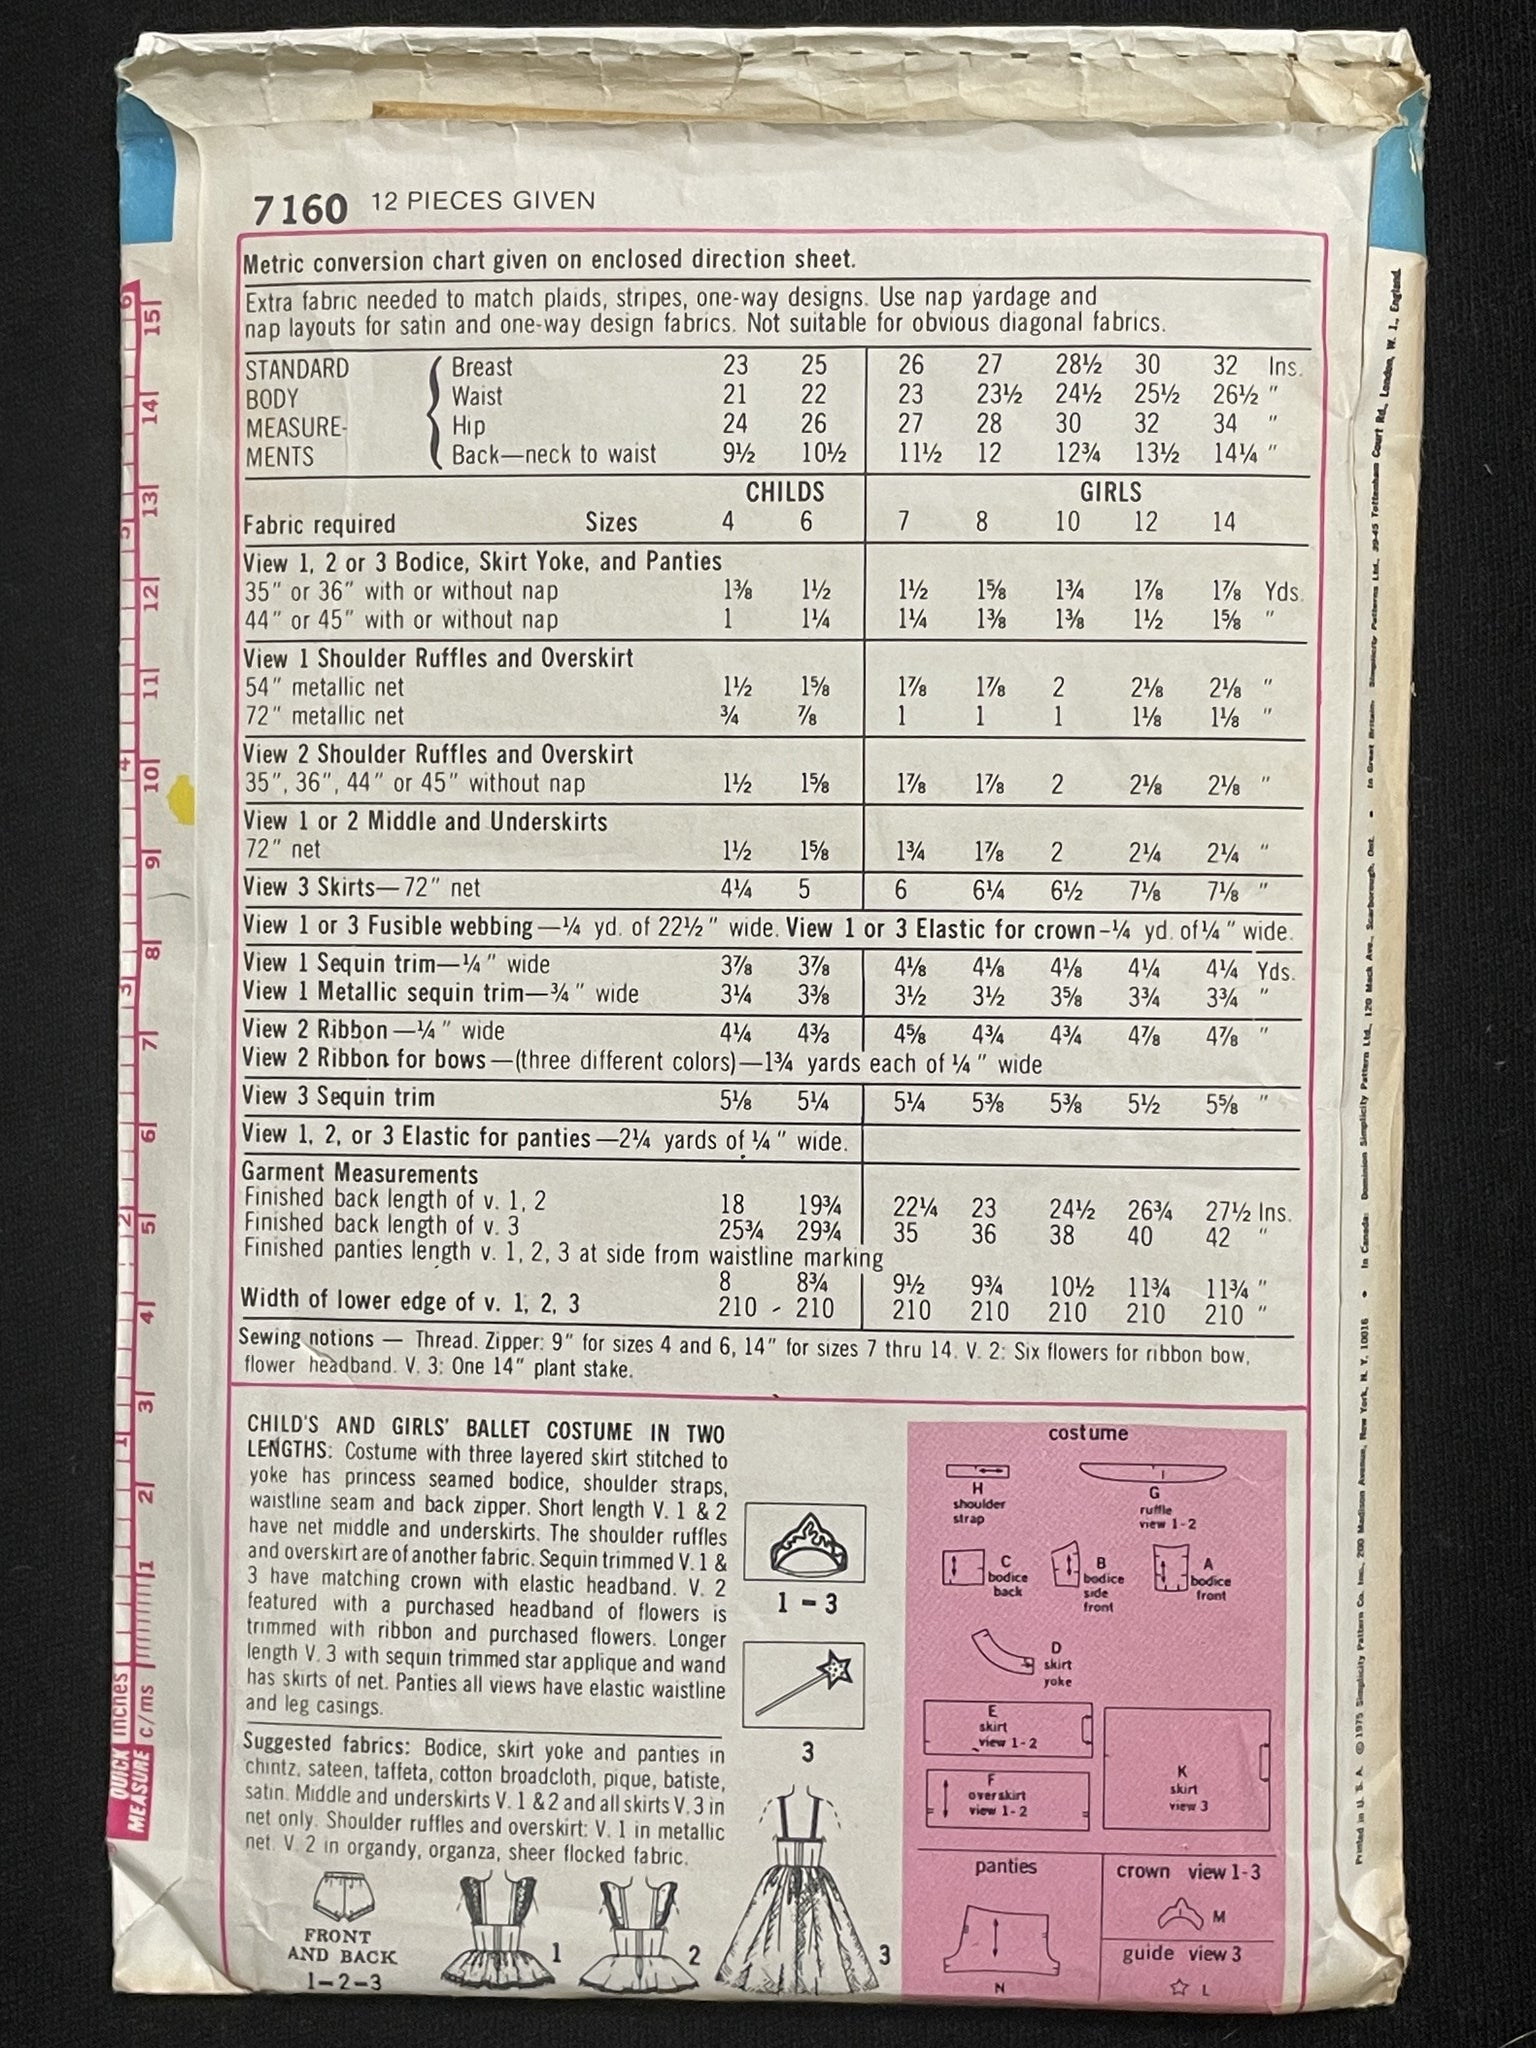 7160 12 PIECES GIVEN
Metric conversion chart given on enclosed direction sheet.
Extra fabric needed to match plaids, stripes, one-way designs. Use nap yardage and
nap layouts for satin and one-way design fabrics. Not suitable for obvious diagonal fabrics.
STANDARD Breast 23 25 26 27 28½ 30 32 Ins.
BODY Waist 21 22 23 23½ 24½ 25½ 26½ "
MEASURE- Hip 24 26 27 28 30 32 34 "
MENTS Back—neck to waist 9½ 10½ 11½ 12 12¾ 13½ 14¼ "
CHILDS GIRLS
Fabric required Sizes 4 6 7 8 10 12 14
View 1, 2 or 3 Bodice, Skirt Yoke, and Panties
35" or 36" with or without nap 1⅜ 1½ 1½ 1⅝ 1¾ 1⅞ 1⅞ Yds.
44" or 45" with or without nap 1 1¼ 1¼ 1⅜ 1⅜ 1½ 1⅝ "
View 1 Shoulder Ruffles and Overskirt
54" metallic net 1½ 1⅝ 1⅞ 1⅞ 2 2⅛ 2⅛ "
72" metallic net ¾ ⅞ 1 1 1 1⅛ 1⅛ "
View 2 Shoulder Ruffles and Overskirt
35", 36", 44" or 45" without nap 1½ 1⅝ 1⅞ 1⅞ 2 2⅛ 2⅛ "
View 1 or 2 Middle and Underskirts
72" net 1½ 1⅝ 1¾ 1⅞ 2 2¼ 2¼ "
View 3 Skirts—72" net 4¼ 5 6 6¼ 6½ 7⅛ 7⅛ "
View 1 or 3 Fusible webbing—¼ yd. of 22½" wide. View 1 or 3 Elastic for crown-¼ yd. of ¼" wide.
View 1 Sequin trim—¼" wide 3⅞ 3⅞ 4⅛ 4⅛ 4⅛ 4¼ 4¼ Yds.
View 1 Metallic sequin trim—¾" wide 3¼ 3⅜ 3½ 3½ 3⅝ 3¾ 3¾ "
View 2 Ribbon—¼" wide 4¼ 4⅜ 4⅝ 4¾ 4¾ 4⅞ 4⅞ "
View 2 Ribbon for bows—(three different colors)—1¾ yards each of ¼" wide
View 3 Sequin trim 5⅛ 5¼ 5¼ 5⅜ 5⅜ 5½ 5⅝ "
View 1, 2, or 3 Elastic for panties—2¼ yards of ¼" wide.
Garment Measurements
Finished back length of v. 1, 2 18 19¾ 22¼ 23 24½ 26¾ 27½ Ins.
Finished back length of v. 3 25¾ 29¾ 35 36 38 40 42 "
Finished panties length v. 1, 2, 3 at side from waistline marking
8 8¾ 9½ 9¾ 10½ 11¾ 11¾ "
Width of lower edge of v. 1, 2, 3 210 - 210 210 210 210 210 210 "
Sewing notions — Thread. Zipper: 9" for sizes 4 and 6, 14" for sizes 7 thru 14. V. 2: Six flowers for ribbon bow,
flower headband. V. 3: One 14" plant stake.
CHILD'S AND GIRLS' BALLET COSTUME IN TWO
LENGTHS: Costume with three layered skirt stitched to
yoke has princess seamed bodice, shoulder straps,
waistline seam and back zipper. Short length V. 1 & 2
have net middle and underskirts. The shoulder ruffles
and overskirt are of another fabric. Sequin trimmed V. 1 &
3 have matching crown with elastic headband. V. 2
featured with a purchased headband of flowers is
trimmed with ribbon and purchased flowers. Longer
length V. 3 with sequin trimmed star applique and wand
has skirts of net. Panties all views have elastic waistline
and leg casings.
Suggested fabrics: Bodice, skirt yoke and panties in
chintz, sateen, taffeta, cotton broadcloth, pique, batiste,
satin. Middle and underskirts V. 1 & 2 and all skirts V. 3 in
net only. Shoulder ruffles and overskirt: V. 1 in metallic
net. V. 2 in organdy, organza, sheer flocked fabric.
FRONT
AND BACK
1-2-3
1
2
3
1 - 3
3
costume
H
shoulder
strap
G
ruffle
view 1-2
C
bodice
back
B
bodice
side
front
A
bodice
front
D
skirt
yoke
E
skirt
view 1-2
F
overskirt
view 1-2
K
skirt
view 3
panties
N
crown view 1-3
M
guide view 3
L
QUICK inches
MEASURE c/ms
1 2 3 4 5 6
1 2 3 4 5 6 7 8 9 10 11 12 13 14 15
Printed in U. S. A. ©1975 Simplicity Pattern Co. Inc., 200 Madison Avenue, New York, N. Y. 10016 • In Canada: Dominion Simplicity Pattern Ltd., 120 Mack Ave., Scarborough, Ont. • In Great Britain: Simplicity Patterns Ltd., 39-45 Tottenham Court Rd., London, W. 1., England